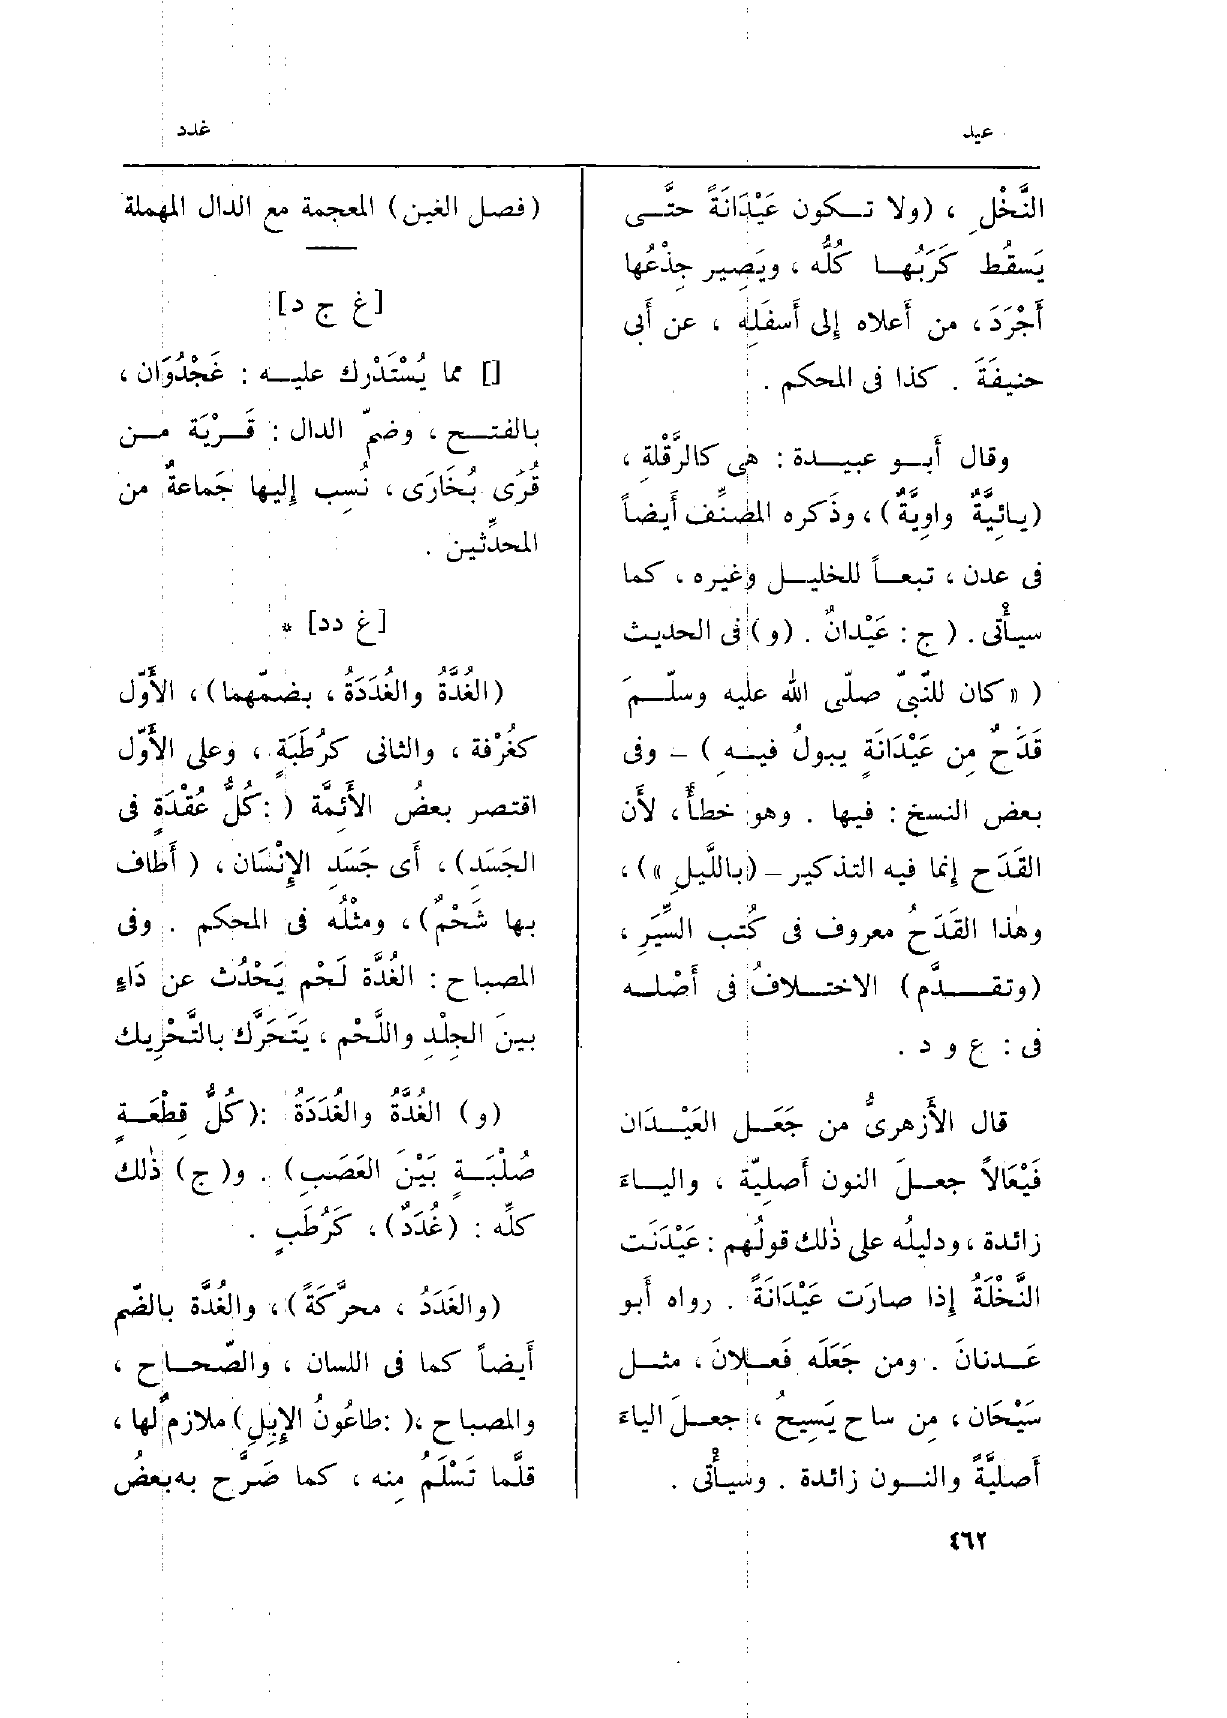 عيد
غدد
النَّخْلِ ، (ولا تـكون عَيْدَانَةً حتَّـى
يَسقُط كَرَبُهـا كُلُّه ، ويَصِير جِذْعُها
أَجْرَدَ ، من أَعلاه إِلى أَسفَلِه ، عن أَبى
حنيفَةَ . كذا فى المحكم .
وقال أَبـو عبيـدة : هى كالرَّقْلِة ،
(يـائِيَّةٌ واوِيَّةٌ) ، وذَكره المصنِّف أَيضاً
فى عدن ، تبعـاً للخليـل وغيره ، كما
سيأْتى . ( ج : عَيْدانٌ . (و) فى الحديث
( « كان للنَّبىّ صلّى الله عليه وسلّـمَ
قَدَحٌ مِن عَيْدَانَةٍ يبولُ فيـهِ ) – وفى
بعض النسخ : فيها . وهو خطأٌ ، لأَن
القَدَح إِنما فيه التذكير – (باللَّيلِ ») ،
وهٰذا القَدَحُ معروف فى كُتب السِّيَرِ ،
(وتقـدَّم) الاختـلافُ فى أَصْلـه
فى : ع و د .
قال الأَزهرىُّ من جَعَـل العَيْـدَان
فَيْعَالاً جعـلَ النون أَصلِيّة ، واليـاءَ
زائدة ، ودليلُه على ذٰلك قولُهم : عَيْدَنَت
النَّخْلَةُ إِذا صارَت عَيْدَانَةً . رواه أَبو
عَـدنانَ . ومن جَعَلَه فَعـلانَ ، مثـل
سَيْحَان ، مِن ساح يَسِيحُ ، جعـلَ الياءَ
أَصليَّةً والنـون زائدة . وسيأْتى .
(فصل الغين) المعجمة مع الدال المهملة
[غ ج د]
[] مما يُسْتَدْرك عليـه : غَجْدُوَان ،
بالفتـح ، وضمّ الدال : قَـرْيَة مـن
قُرَى بُخَارَى ، نُسِب إِليها جَماعةٌ من
المحدِّثين .
[غ دد] *
(الغُدَّةُ والغُدَدَةُ ، بضمّهما) ، الأَوّل
كغُرْفة ، والثانى كرُطَبَةٍ ، وعلى الأَوّل
اقتصر بعضُ الأَئِمَّة ( :كُلُّ عُقْدَةٍ فى
الجَسَد) ، أَى جَسَدِ الإِنْسَان ، ( أَطاف
بها شَحْمٌ) ، ومثْلُه فى المحكم . وفى
المصباح : الغُدَّة لَحْم يَحْدُث عن دَاءٍ
بينَ الجِلْدِ واللَّحْمِ ، يَتَحَرَّك بالتَّحْرِيك
(و) الغُدَّةُ والغُدَدَةُ :(كُلُّ قِطْعَـةٍ
صُلْبَـةٍ بَيْنَ العَصَبِ) . و( ج) ذٰلك
كلِّه : (غُدَدٌ) ، كَرُطَبٍ .
(والغَدَدُ ، محرَّكَةً) ، والغُدَّة بالضّم
أَيضاً كما فى اللسان ، والصّحـاح ،
والمصباح ،( :طاعُونُ الإِبِلِ) ملازمٌ لها ،
قلَّما تَسْلَمُ مِنه ، كما صَرَّح به بعضُ
٤٦٢